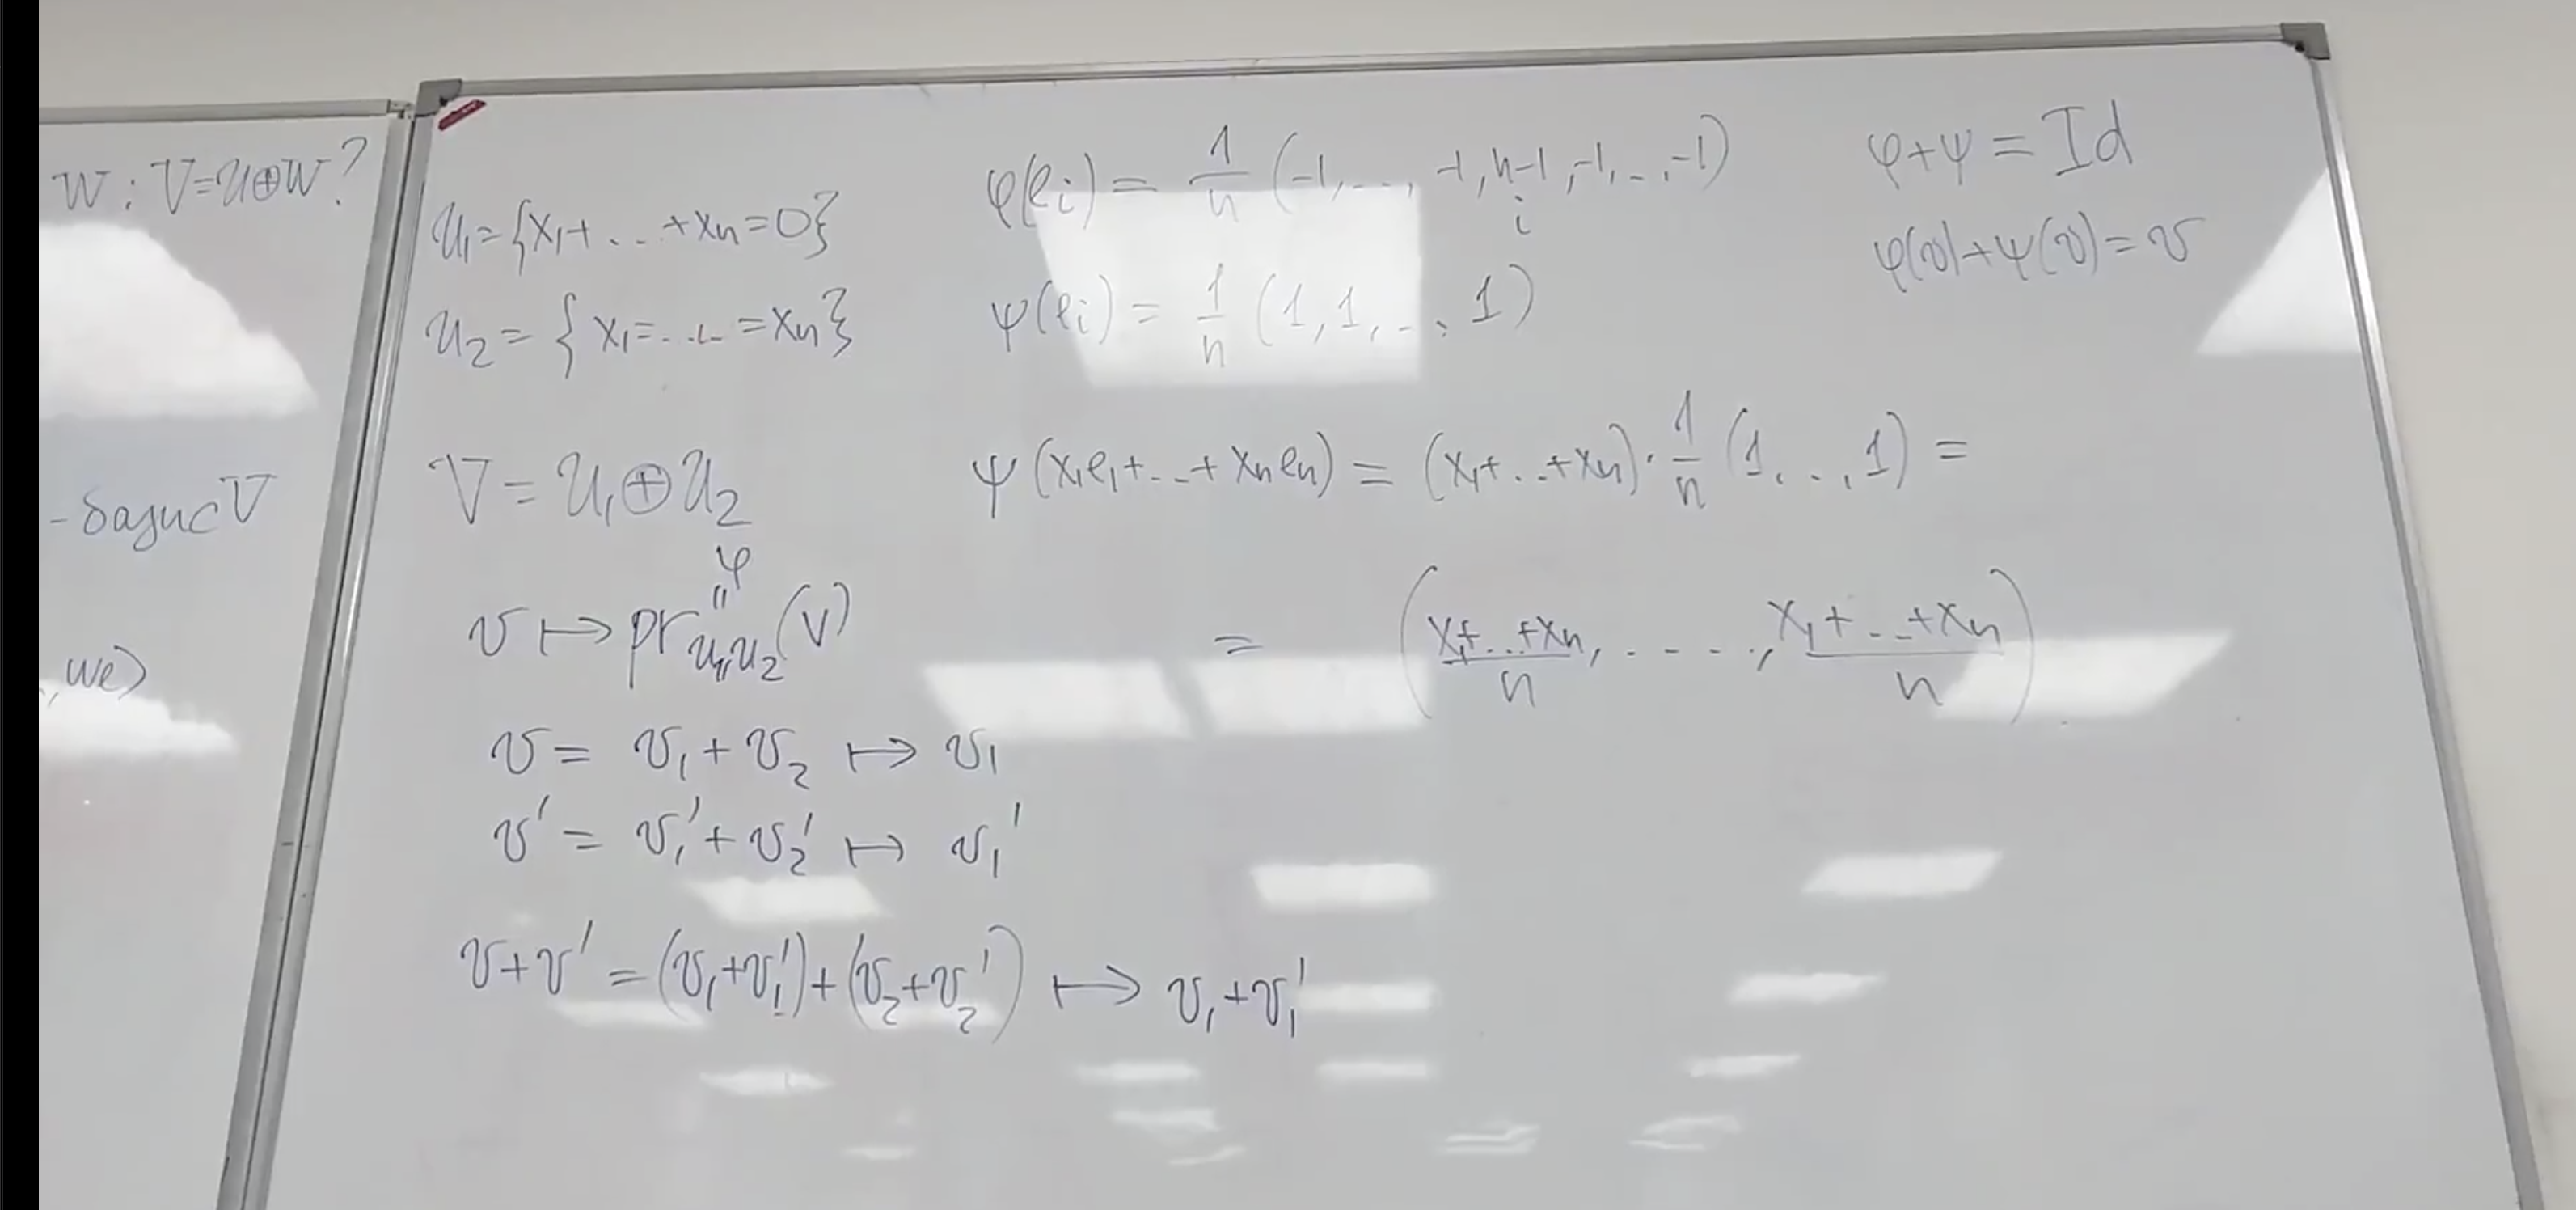 W : V = U ⊕ W ?
- базис V
, we⟩
U₁ = {x₁ + ... + xₙ = 0}
U₂ = {x₁ = ... = xₙ}
V = U₁ ⊕ U₂
φ
"
v ↦ pr_{U₁,U₂}(v)
v = v₁ + v₂ ↦ v₁
v' = v₁' + v₂' ↦ v₁'
v + v' = (v₁ + v₁') + (v₂ + v₂') ↦ v₁ + v₁'
φ(eᵢ) = 1/n (-1, ..., -1, n-1, -1, ..., -1)
i
ψ(eᵢ) = 1/n (1, 1, ..., 1)
ψ(x₁e₁ + ... + xₙeₙ) = (x₁ + ... + xₙ) · 1/n (1, ..., 1) =
= ((x₁ + ... + xₙ)/n, ...., (x₁ + ... + xₙ)/n)
φ + ψ = Id
φ(v) + ψ(v) = v